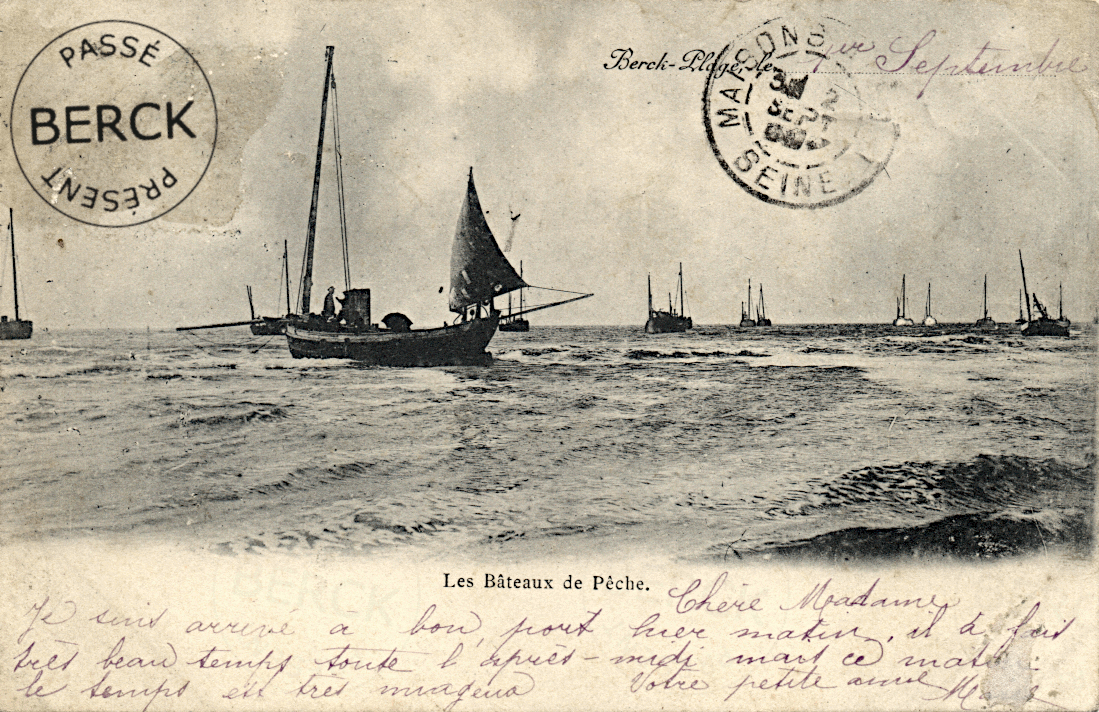 PASSÉ
BERCK
PRÉSENT
Berck-Plage, le 1er Septembre
MAISONS
2
SEPT
SEINE
Les Bâteaux de Pêche.
Chère Madame
Je suis arrivé à bon port hier matin, il à fait
très beau temps toute l'après-midi mais ce
le temps est très nuageux Votre petite amie